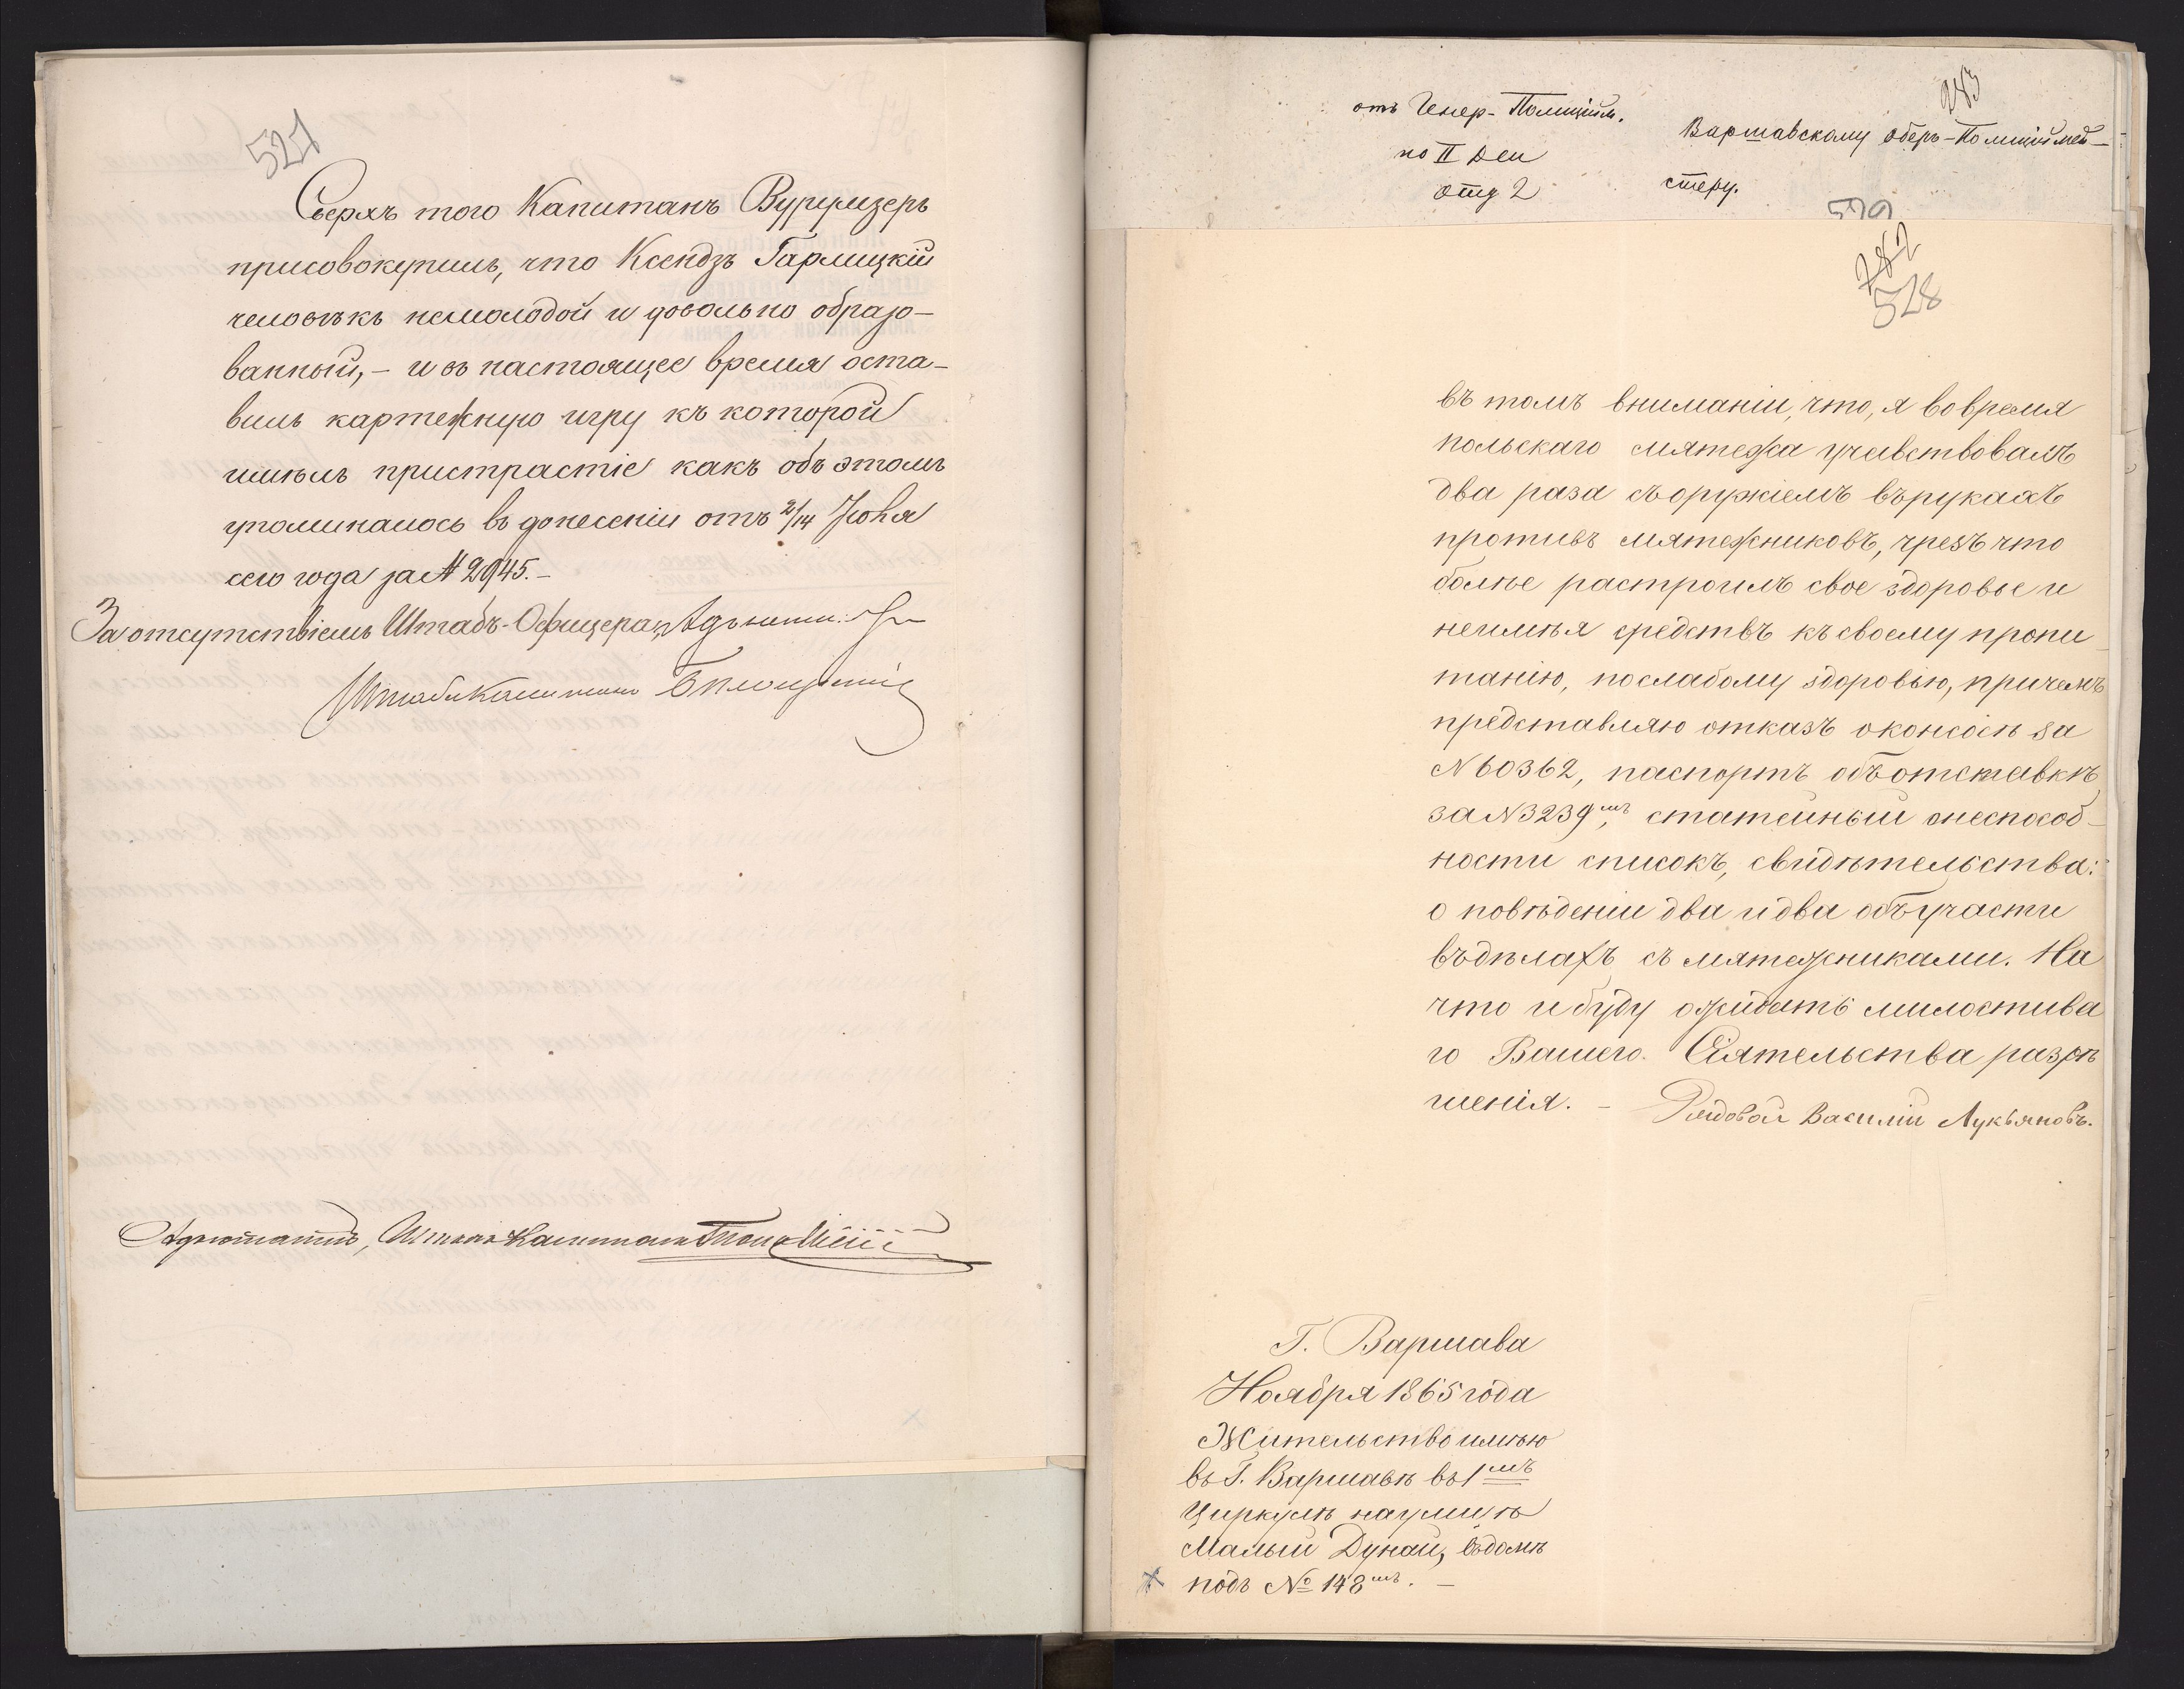 527
Сверхъ того Капитанъ Вурцмзеръ
присовокупилъ, что Ксендзъ Гарлицкій
человѣкъ немолодой и довольно образо-
ванный, - и въ настоящее время оста-
вилъ картежную игру къ которой
имѣлъ пристрастіе какъ объ этомъ
упоминалось въ донесеніи отъ 2/14 Іюня
сего года за № 2945. -
За отсутствіемъ Штабъ-Офицера,
Штабсъ Капитанъ
Адъютантъ, Штабсъ Капитанъ
283
отъ Генер-Полиційм.
Варшавскому Оберъ-Полиціймей-
по II Деи
стеру.
отд 2
529
282
528
въ томъ вниманіи, что, я вовремя
польскаго мятежа учавствовалъ
два раза съоружіемъ върукахъ
противъ мятежниковъ, чрезъ что
болѣе растроилъ свое здоровье и
неимѣя средствъ къ своему пропи
танію, послабому здоровью, причемъ
представляю отказъ оконсоіи за
№ 60362, паспортъ объотставкѣ
за №3239мъ, статейный онеспособ-
ности списокъ, свидѣтельства:
о повѣденіи два и два объучасти
въдѣлахъ съ мятежниками. На
что и буду ожидать милостива
го Вашего Сіятельства разрѣ
шенія. - Рядовой Василій Лукьяновъ.
Г. Варшава
Ноября 1865 года
Жительство имѣю
въ Г. Варшавѣ въ 1мъ
Циркулѣ наулицѣ
Малый Дунай, въдомѣ
подъ № 148мъ. -